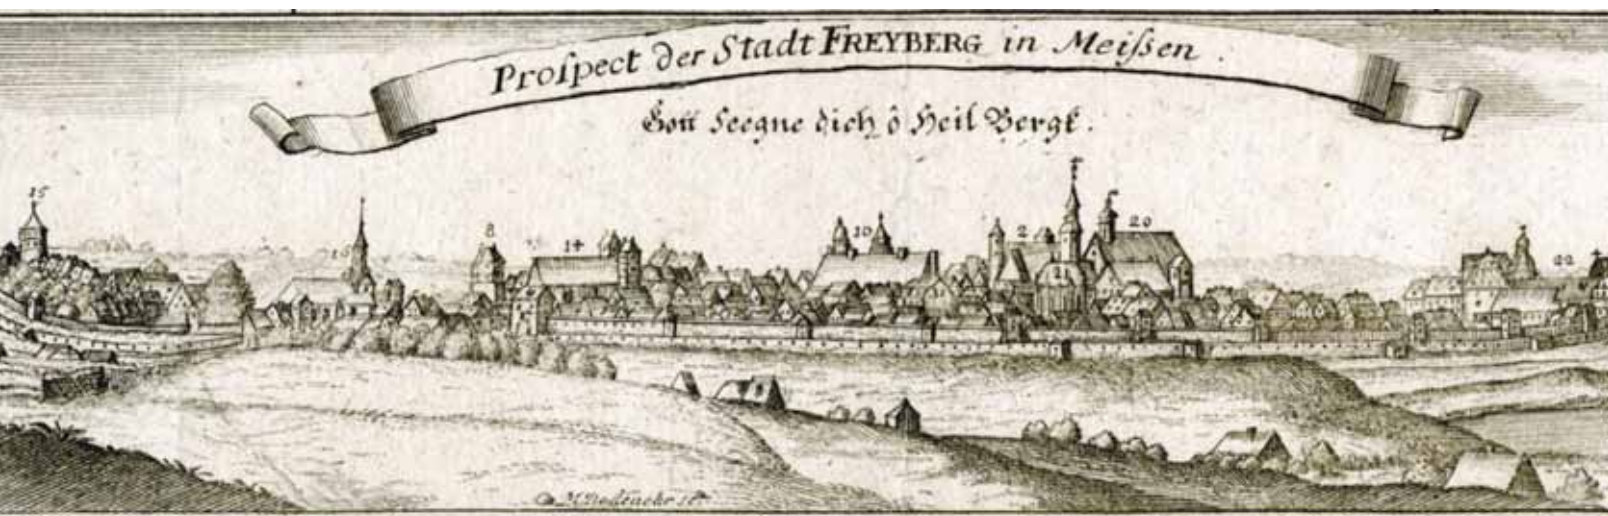 Prospect der Stadt FREYBERG in Meißen.
Gott Seegne dich ô Heil Bergk.
15
8
14
10
2
20
21
22
M. Bodenehr sc.